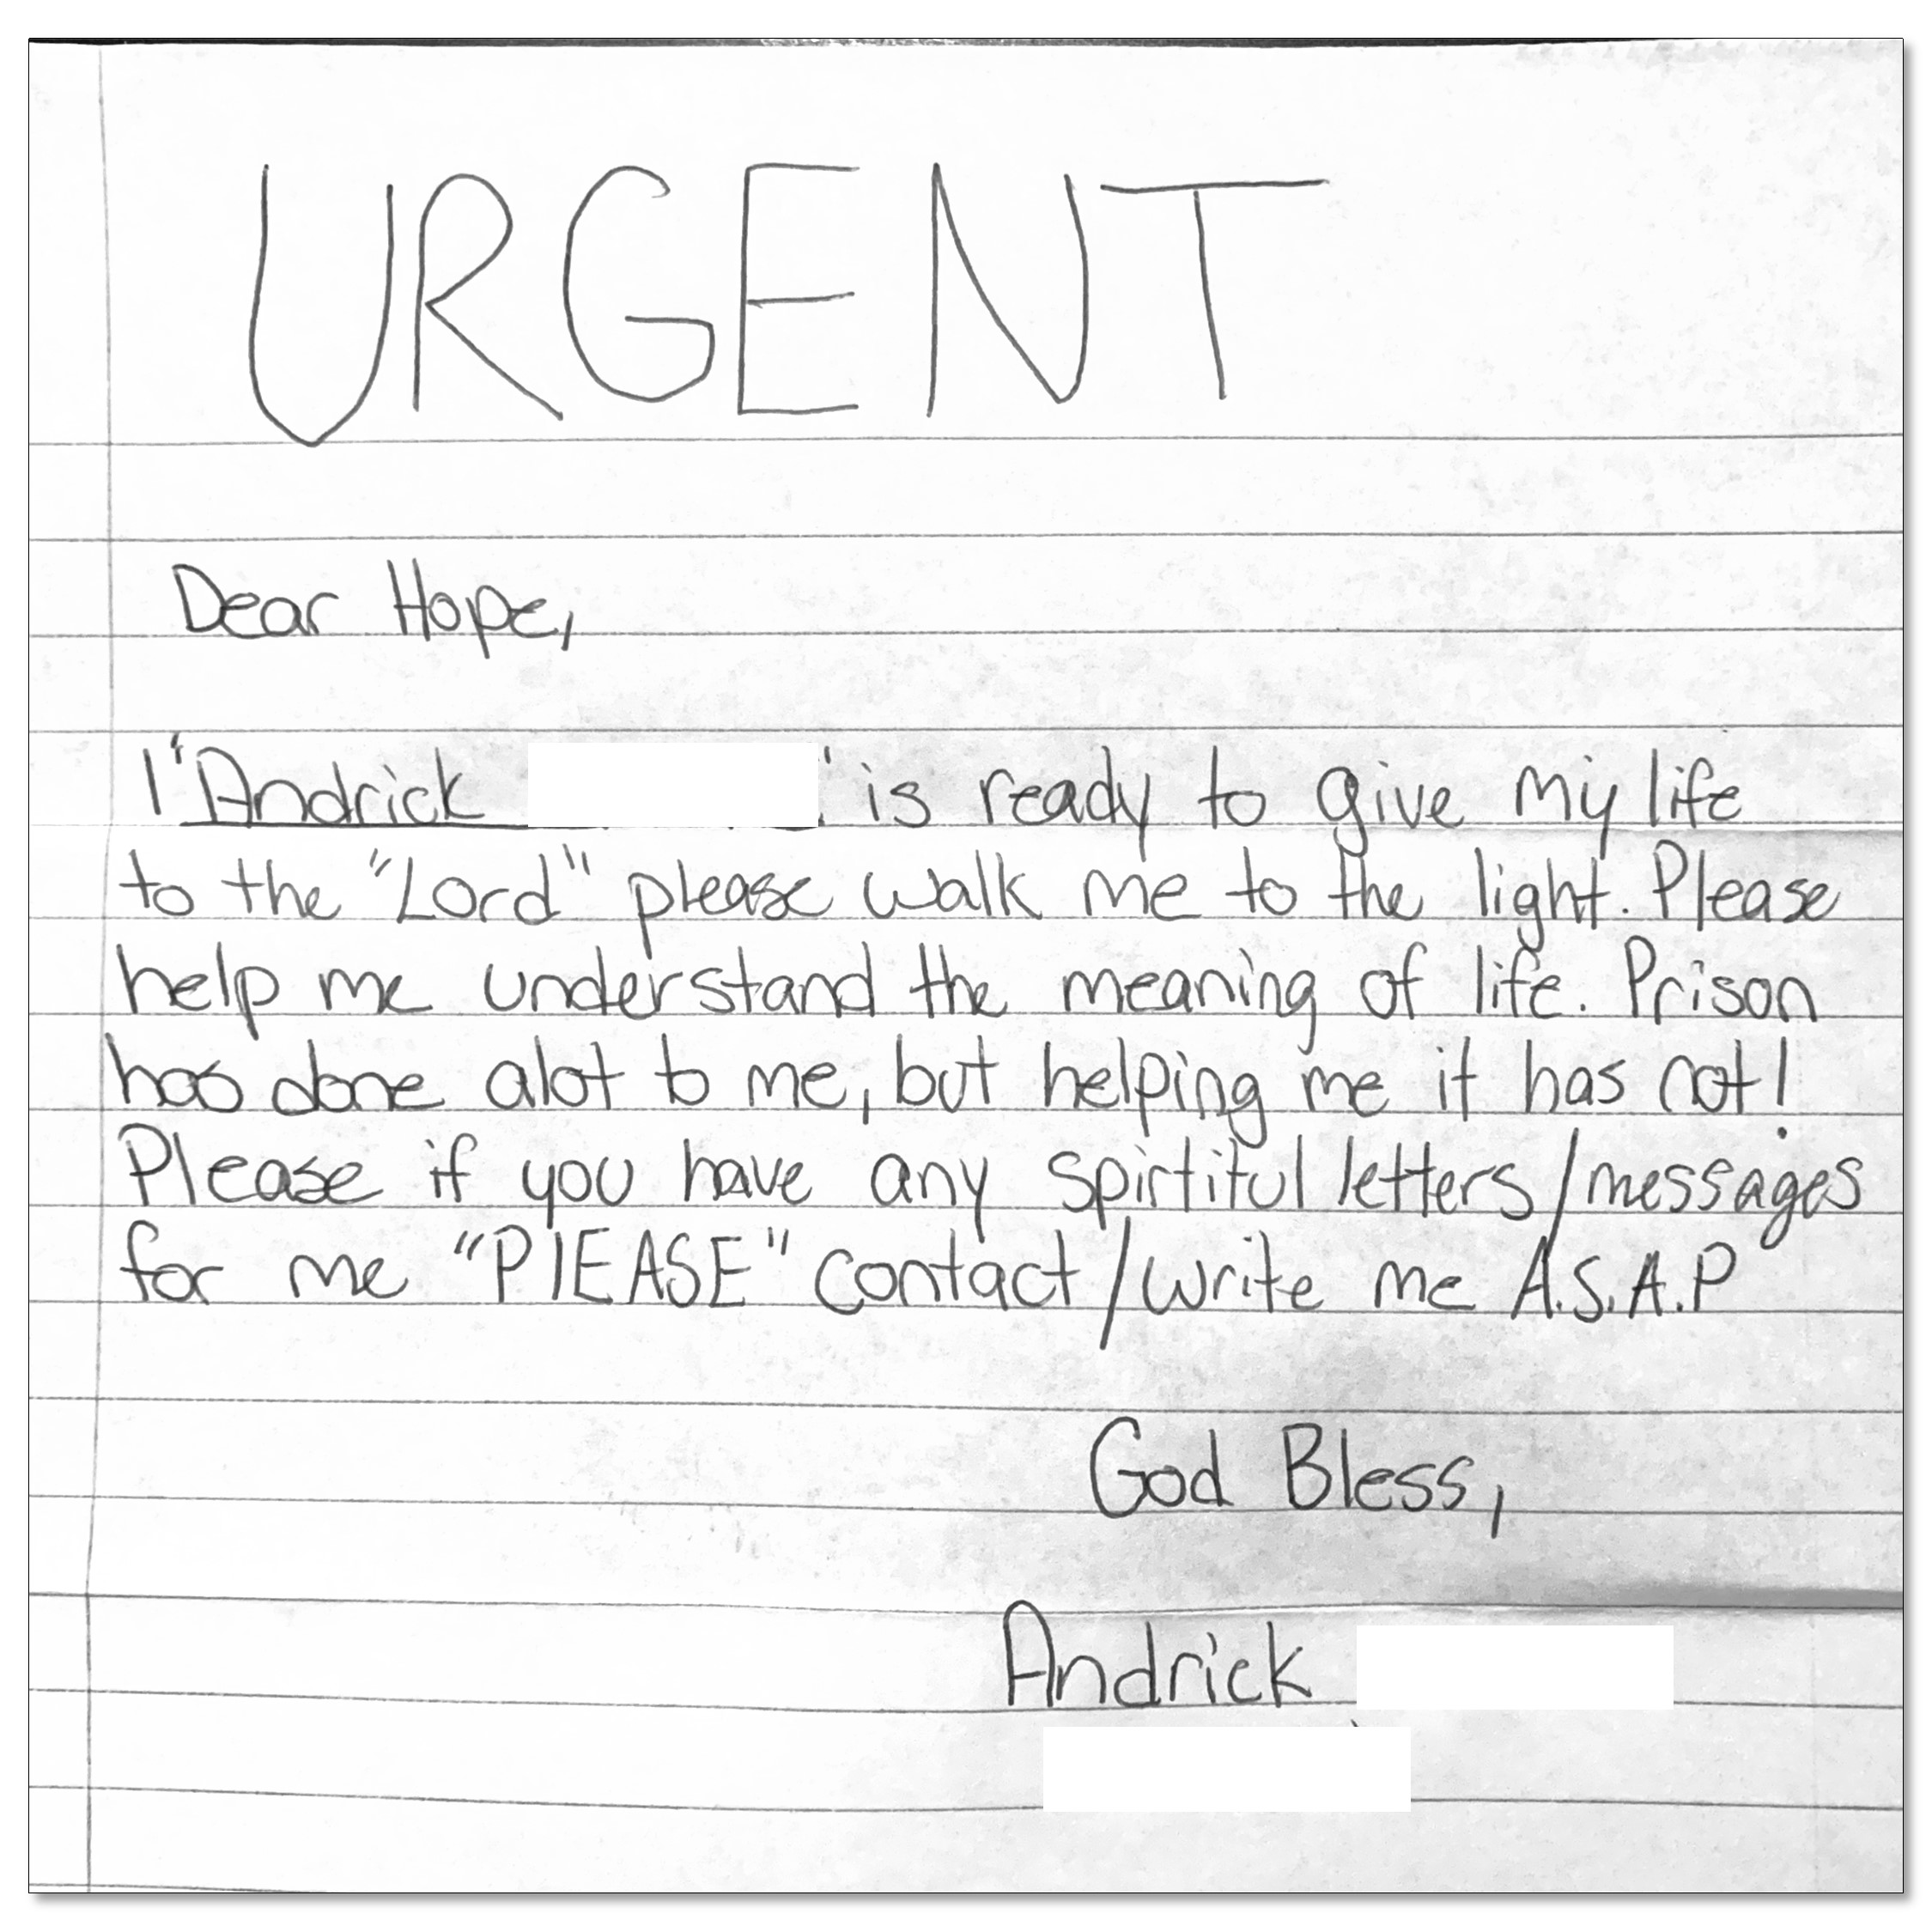 URGENT
Dear Hope,
I "Andrick ' is ready to give my life
to the "Lord" please walk me to the light. Please
help me understand the meaning of life. Prison
has done alot to me, but helping me it has not!
Please if you have any spirtitul letters/messages
for me "PlEASE" contact/write me A.S.A.P
God Bless,
Andrick